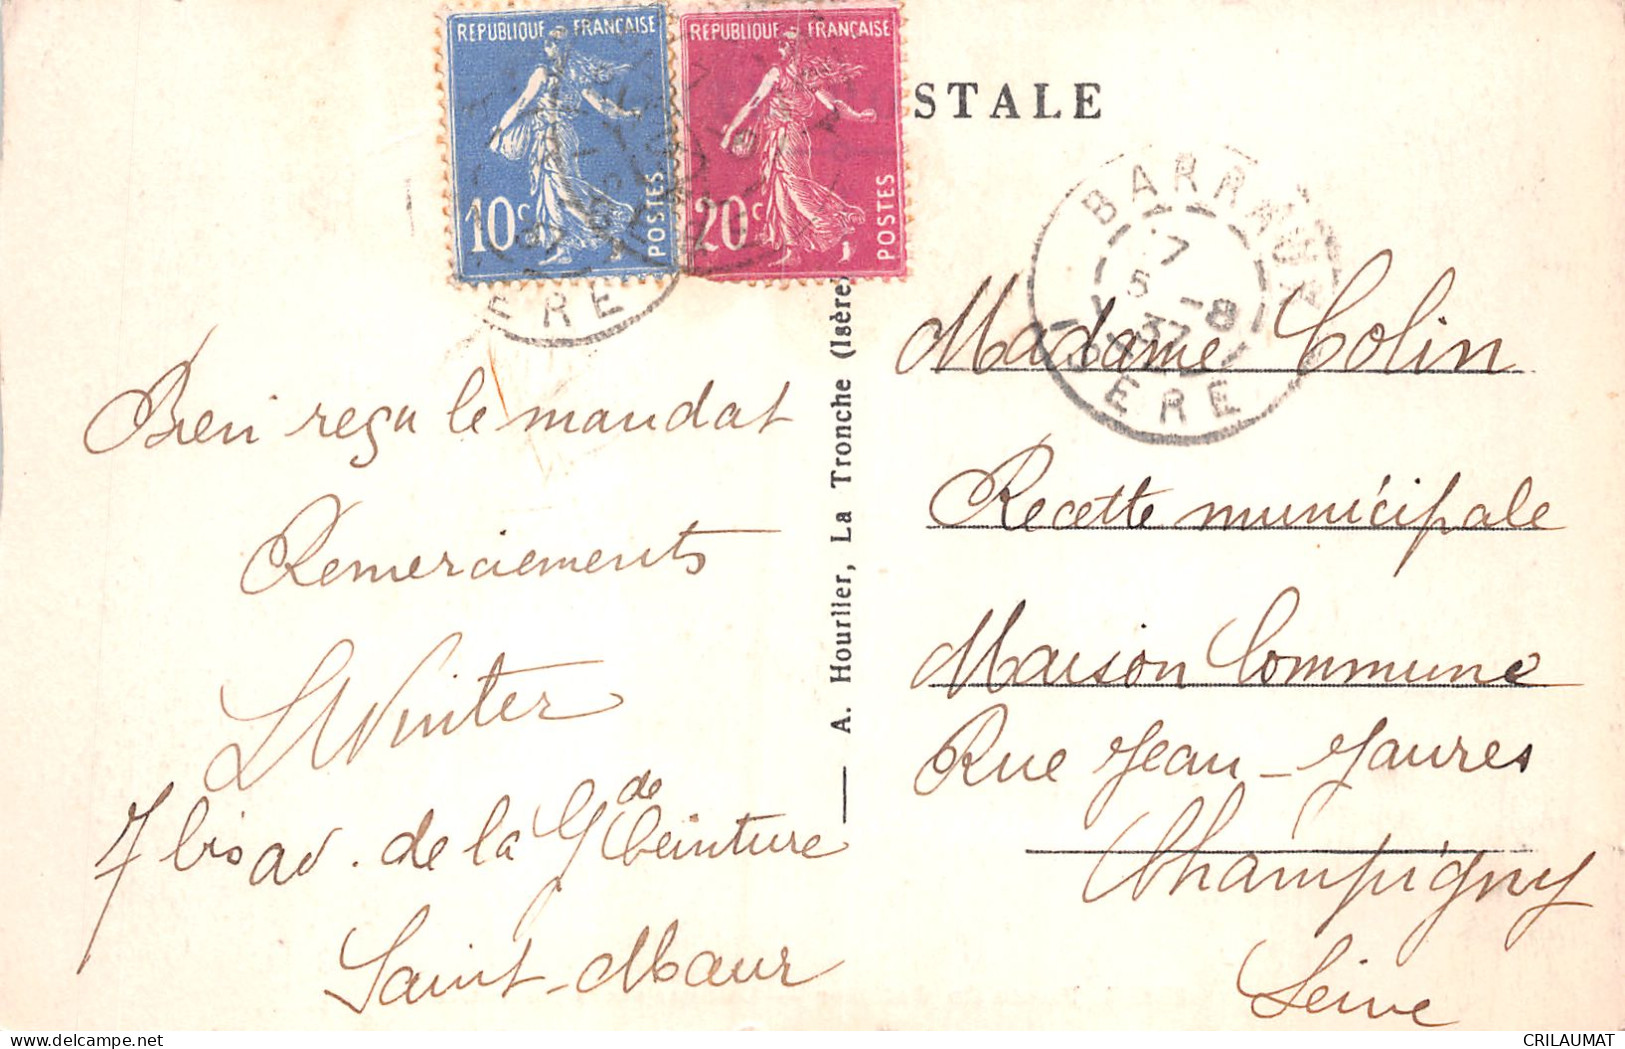 REPUBLIQUE FRANÇAISE
10c
POSTES
REPUBLIQUE FRANÇAISE
20c
POSTES
STALE
BARRAUX
7
5 -8
37
ISERE
ERE
Bien reçu le mandat
Remerciements
LWinter
7 bis av. de la Gde Ceinture
Saint-Maur
A. Hourlier, La Tronche (Isère
Madame Colin
Recette municipale
Maison Commune
Rue Jean-Jaures
Champigny
Seine
CRILAUMAT